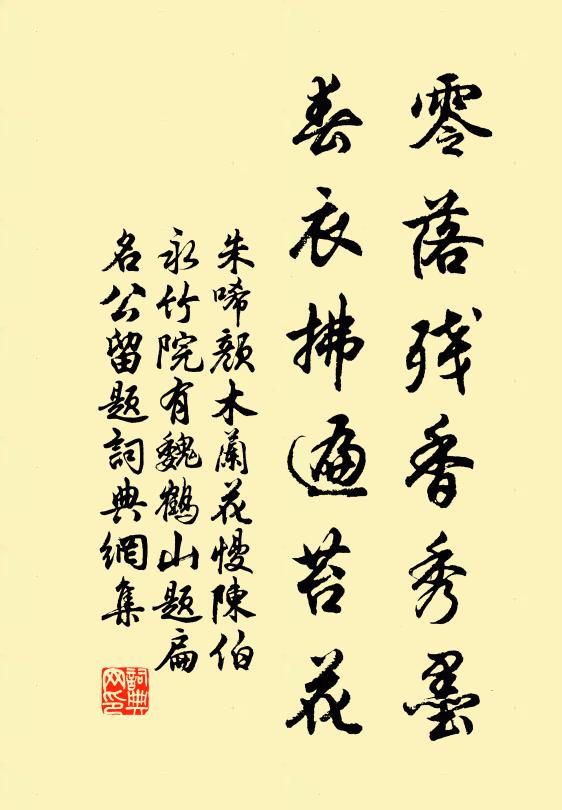 零落残香秀墨
春衣拂遍苔花
朱晞颜木蘭花慢陳伯
永竹院有魏鶴山题扁
名公留题詞典網集
詞典网印